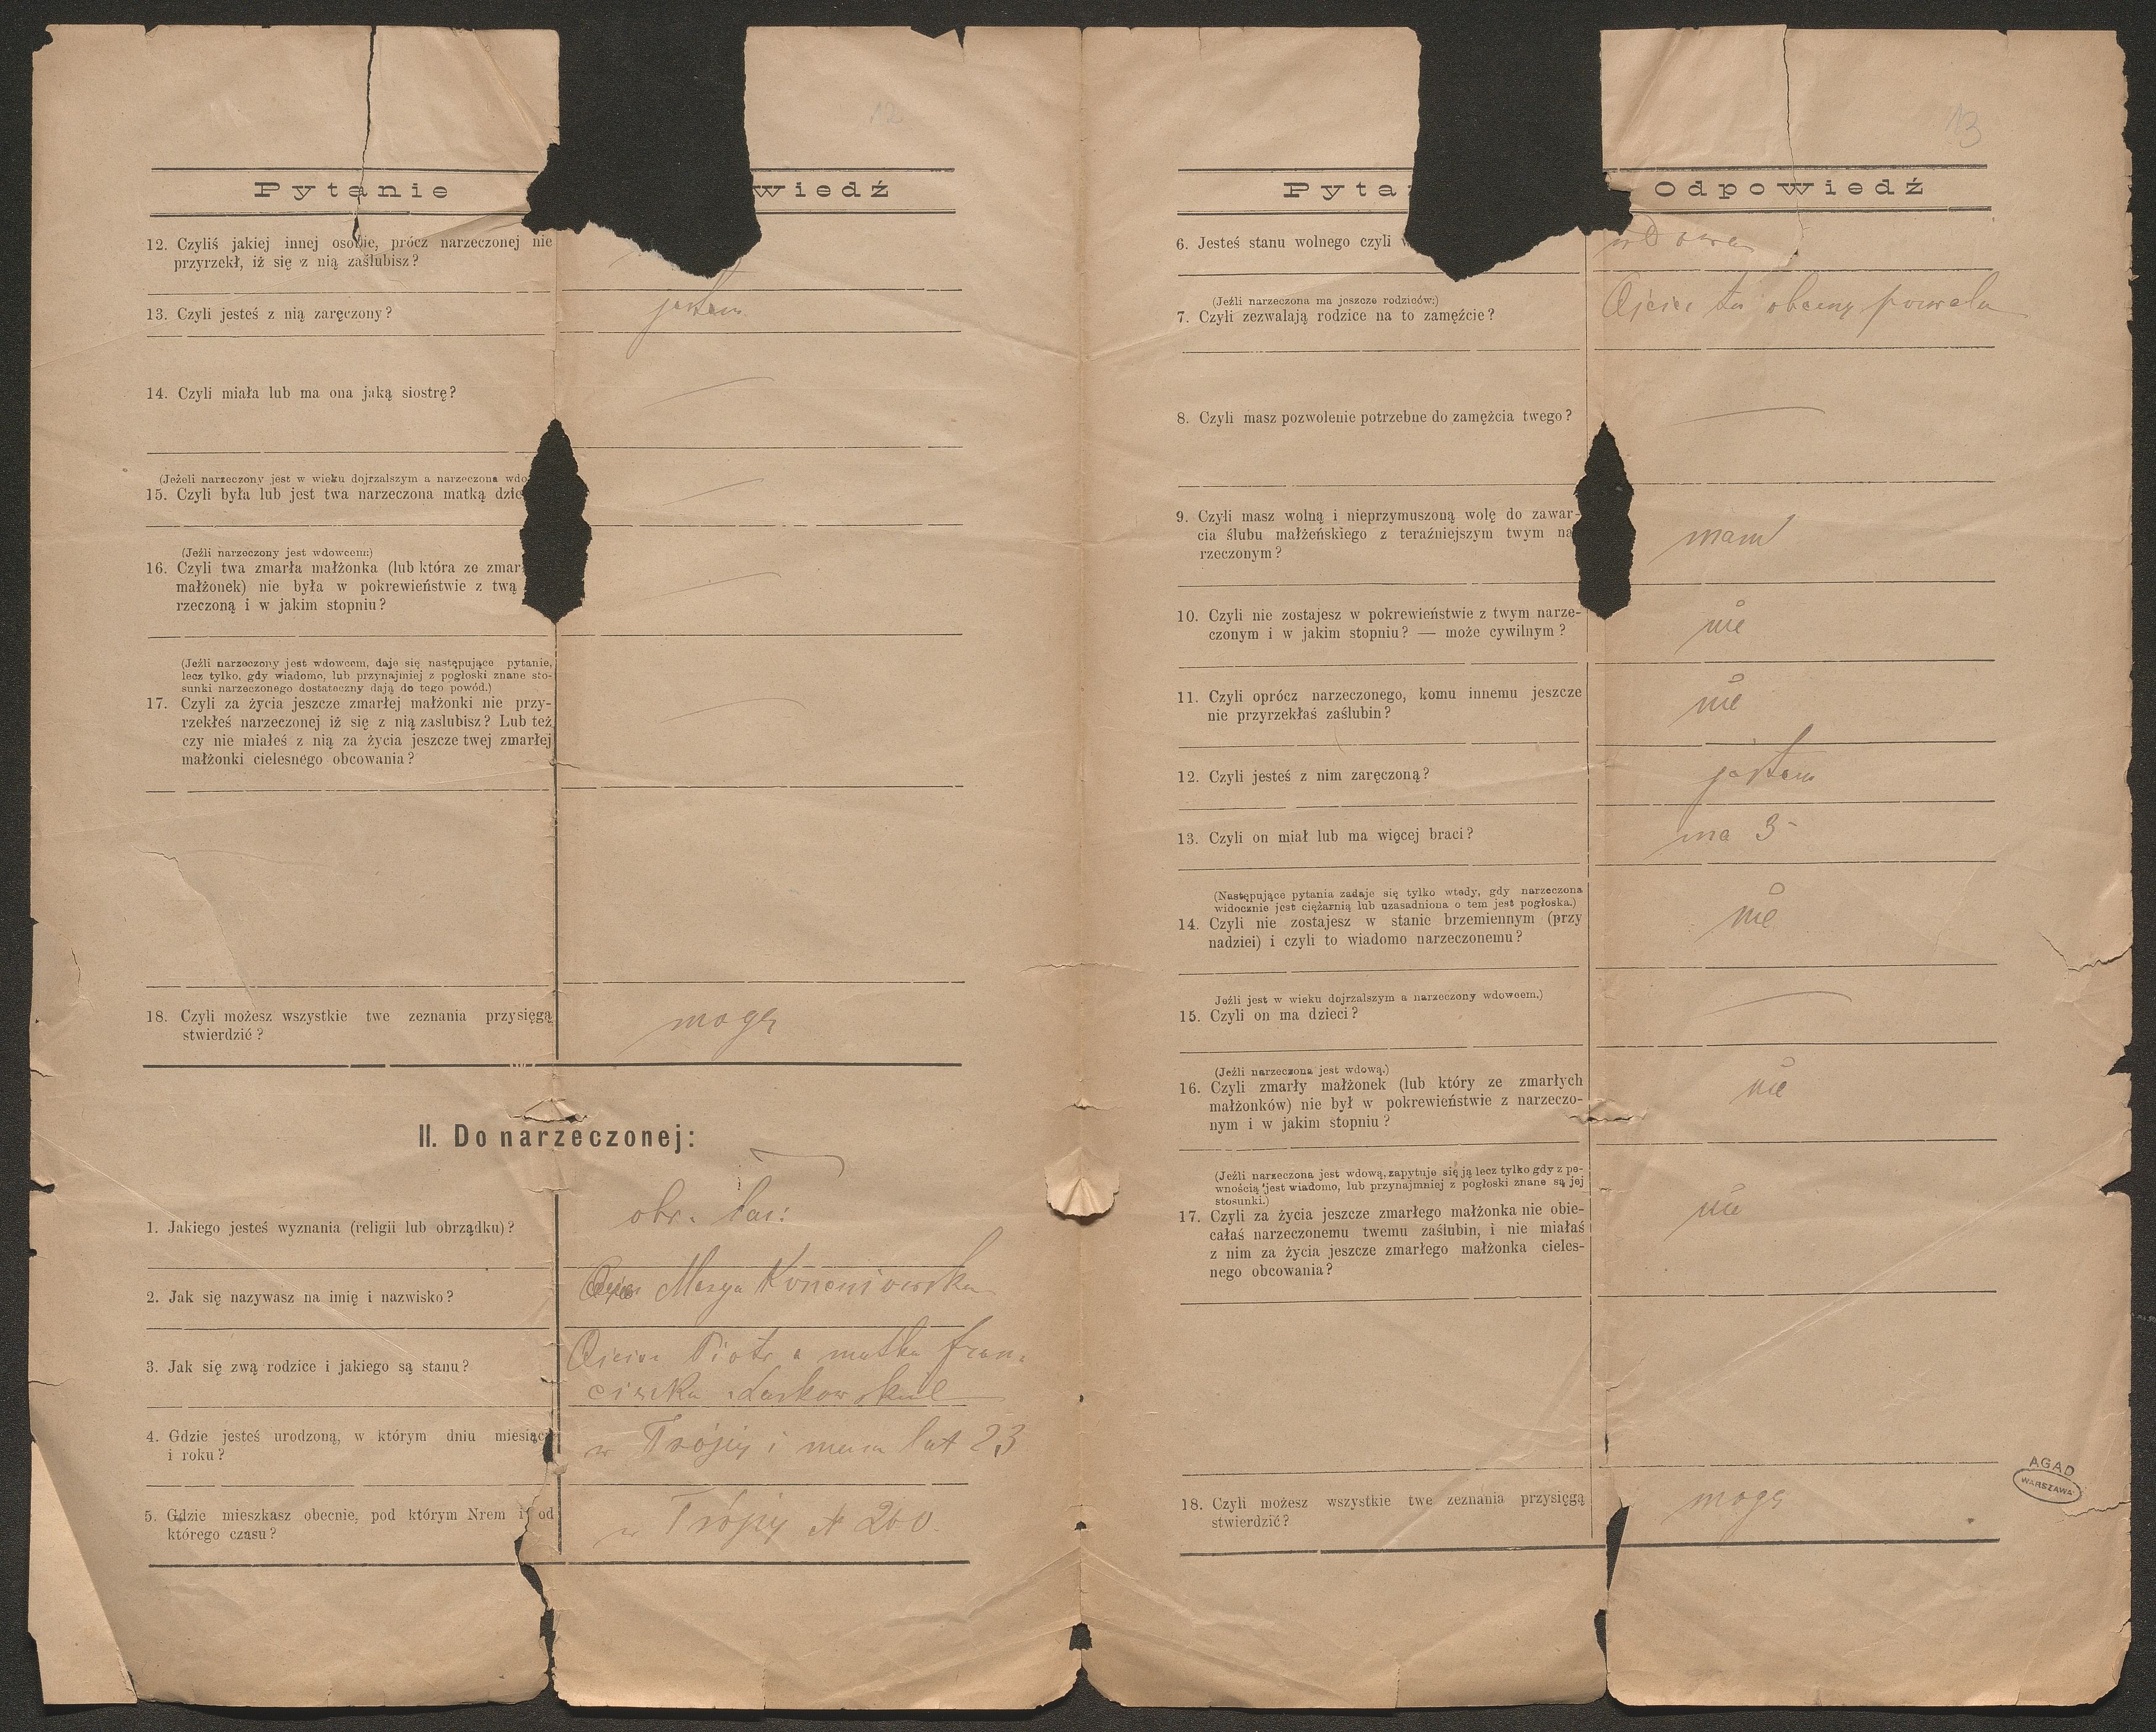 12
Pytanie
wiedź
12. Czyliś jakiej innej osobie, prócz narzeczonej nie
przyrzekł, iż się z nią zaślubisz?
13. Czyli jesteś z nią zaręczony?
jestem
14. Czyli miała lub ma ona jaką siostrę?
(Jeżeli narzeczony jest w wieku dojrzalszym a narzeczona wdo
15. Czyli była lub jest twa narzeczona matką dzie
(Jeźli narzeczony jest wdowcem:)
16. Czyli twa zmarła małżonka (lub która ze zmar
małżonek) nie była w pokrewieństwie z twą
rzeczoną i w jakim stopniu?
(Jeźli narzeczony jest wdowcem, daje się następujące pytanie,
lecz tylko, gdy wiadomo, lub przynajmiej z pogłoski znane sto-
sunki narzeczonego dostateczny dają do tego powód.)
17. Czyli za życia jeszcze zmarłej małżonki nie przy-
rzekłeś narzeczonej iż się z nią zaslubisz? Lub też
czy nie miałeś z nią za życia jeszcze twej zmarłej
małżonki cielesnego obcowania?
18. Czyli możesz wszystkie twe zeznania przysięgą
stwierdzić?
mogę
II. Do narzeczonej:
1. Jakiego jesteś wyznania (religii lub obrządku)?
obr. łac:
2. Jak się nazywasz na imię i nazwisko?
Marya
3. Jak się zwą rodzice i jakiego są stanu?
Ojciec Piotr a matka Fran-
ciszka
4. Gdzie jesteś urodzoną, w którym dniu miesiąc
i roku?
w Trójcy i mam lat 23
5. Gdzie mieszkasz obecnie, pod którym Nrem i od
którego czasu?
w Trójcy N 260.
13
Pyta
Odpowiedź
6. Jesteś stanu wolnego czyli w
wdowa
(Jeźli narzeczona ma jeszcze rodziców:)
7. Czyli zezwalają rodzice na to zamęźcie?
Ojciec tu obecny pozwala
8. Czyli masz pozwolenie potrzebne do zamężcia twego?
9. Czyli masz wolną i nieprzymuszoną wolę do zawar-
cia ślubu małżeńskiego z teraźniejszym twym na
rzeczonym?
mam
10. Czyli nie zostajesz w pokrewieństwie z twym narze-
czonym i w jakim stopniu? — może cywilnym?
nie
11. Czyli oprócz narzeczonego, komu innemu jeszcze
nie przyrzekłaś zaślubin?
nie
12. Czyli jesteś z nim zaręczoną?
jestem
13. Czyli on miał lub ma więcej braci?
ma 3
(Następujące pytania zadaje się tylko wtedy, gdy narzeczona
widocznie jest ciężarnią lub uzasadniona o tem jest pogłoska.)
14. Czyli nie zostajesz w stanie brzemiennym (przy
nadziei) i czyli to wiadomo narzeczonemu?
nie
Jeźli jest w wieku dojrzalszym a narzeczony wdowcem.)
15. Czyli on ma dzieci?
(Jeźli narzeczona jest wdową.)
16. Czyli zmarły małżonek (lub który ze zmarłych
małżonków) nie był w pokrewieństwie z narzeczo-
nym i w jakim stopniu?
nie
(Jeźli narzeczona jest wdową, zapytuje się ją lecz tylko gdy z pe-
wnością jest wiadomo, lub przynajmniej z pogłoski znane są jej
stosunki.)
17. Czyli za życia jeszcze zmarłego małżonka nie obie-
całaś narzeczonemu twemu zaślubin, i nie miałaś
z nim za życia jeszcze zmarłego małżonka cieles-
nego obcowania?
nie
18. Czyli możesz wszystkie twe zeznania przysięgą
stwierdzić?
mogę
AGAD
WARSZAWA